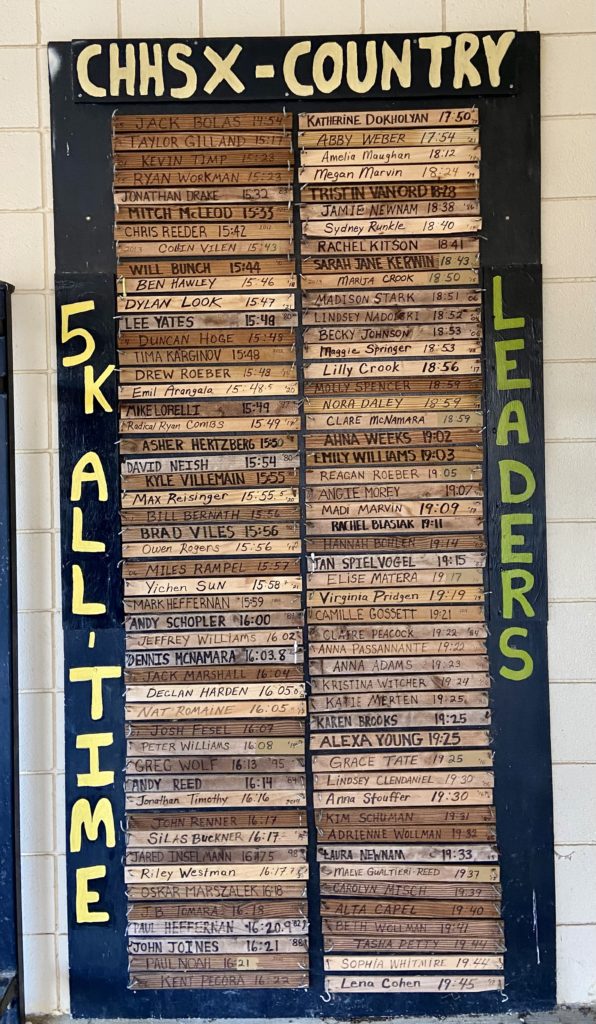 CHHS X-COUNTRY
5K ALL-TIME
JACK BOLAS 14:54
TAYLOR GILLAND 15:17
KEVIN TIMP 15:23
RYAN WORKMAN 15:23
JONATHAN DRAKE 15:32
MITCH McLEOD 15:33
CHRIS REEDER 15:42
COLIN VILEN 15:43
WILL BUNCH 15:44
BEN HAWLEY 15:46
DYLAN LOOK 15:47
LEE YATES 15:48
DUNCAN HOGE 15:48
TIMA KARGINOV 15:48
DREW ROEBER 15:48
Emil Arangala 15:48.5
MIKE LORELLI 15:49
Radical Ryan Combs 15:49
ASHER HERTZBERG 15:50
DAVID NEISH 15:54 '80
KYLE VILLEMAIN 15:55
MAX Reisinger 15:55.5
BILL BERNATH 15:56
BRAD VILES 15:56
Owen Rogers 15:56
MILES RAMPEL 15:57
Yichen SUN 15:58
MARK HEFFERNAN 15:59
ANDY SCHOPLER 16:00
JEFFREY WILLIAMS 16:02
DENNIS McNAMARA 16:03.8
JACK MARSHALL 16:04
DECLAN HARDEN 16:05
NAT ROMAINE 16:05
JOSH FESEL 16:07
PETER WILLIAMS 16:08
GREG WOLF 16:13 '95
ANDY REED 16:14
Jonathan Timothy 16:16
JOHN RENNER 16:17
SILAS BUCKNER 16:17
JARED INSELMANN 16:17.5 98
Riley Westman 16:17
OSKAR MARSZALEK 16:18
J.B. TOMARA 16:18
PAUL HEFFERNAN 16:20.9
JOHN JOINES 16:21 88
PAUL NOAH 16:21
KENT PECORA 16:22
KATHERINE DOKHOLYAN 17:50
ABBY WEBER 17:54
Amelia Maughan 18:12
Megan Marvin 18:24
TRISTIN VAN ORD 18:28
JAMIE NEWNAM 18:38
Sydney Runkle 18:40
RACHEL KITSON 18:41
SARAH JANE KERWIN 18:43
MARIJA CROOK 18:50
MADISON STARK 18:51
LINDSEY NADOLSKI 18:52
BECKY JOHNSON 18:53
Maggie Springer 18:53
Lilly Crook 18:56
MOLLY SPENCER 18:59
NORA DALEY 18:59
CLARE McNAMARA 18:59
AHNA WEEKS 19:02
EMILY WILLIAMS 19:03
REAGAN ROEBER 19:05
ANGIE MOREY 19:07
MADI MARVIN 19:09
RACHEL BLASIAK 19:11
HANNAH BOHLEN 19:14
JAN SPIELVOGEL 19:15
ELISE MATERA 19:17
Virginia Pridgen 19:19
CAMILLE GOSSETT 19:21
CLAIRE PEACOCK 19:22
ANNA PASSANNANTE 19:22
ANNA ADAMS 19:23
KRISTINA WITCHER 19:24
KATIE MERTEN 19:25
KAREN BROOKS 19:25
ALEXA YOUNG 19:25
GRACE TATE 19:25
LINDSEY CLENDANIEL 19:30
Anna Stouffer 19:30
KIM SCHUMAN 19:31
ADRIENNE WOLLMAN 19:32
LAURA NEWNAM 19:33
MAEVE GUALTIERI-REED 19:37
CAROLYN MISCH 19:39
ALTA CAPEL 19:40
BETH WOLLMAN 19:41
TASHA PETTY 19:44
SOPHIA WHITMIRE 19:44
Lena Cohen 19:45
LEADERS